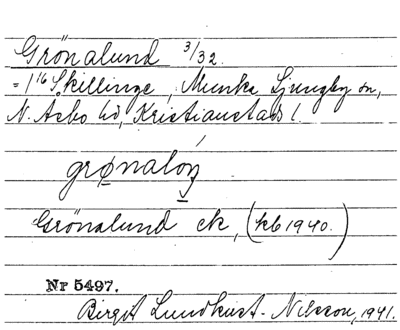 Grönalund 3/32.
= 1¹⁶ Skillinge, Munka Ljungby sn,
N. Åsbo hd, Kristianstads l.
grønalón̲
Grönalund ek, (kb 1940.)
Nr 5497.
Birgit Lundkvist-Nilsson, 1941.